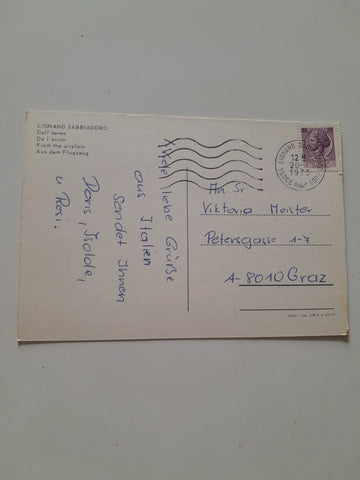 LIGNANO SABBIADORO
Dall'aereo
De l'avion
From the airplain
Aus dem Flugzeug
Viele liebe Grüße
aus Italien
Sendet Ihnen
Doris, Isolde,
u. Resi.
LIGNANO SABBIADORO
12
20
An Sr
Viktoria Meister
Petersgasse 1-4
A-8010 Graz